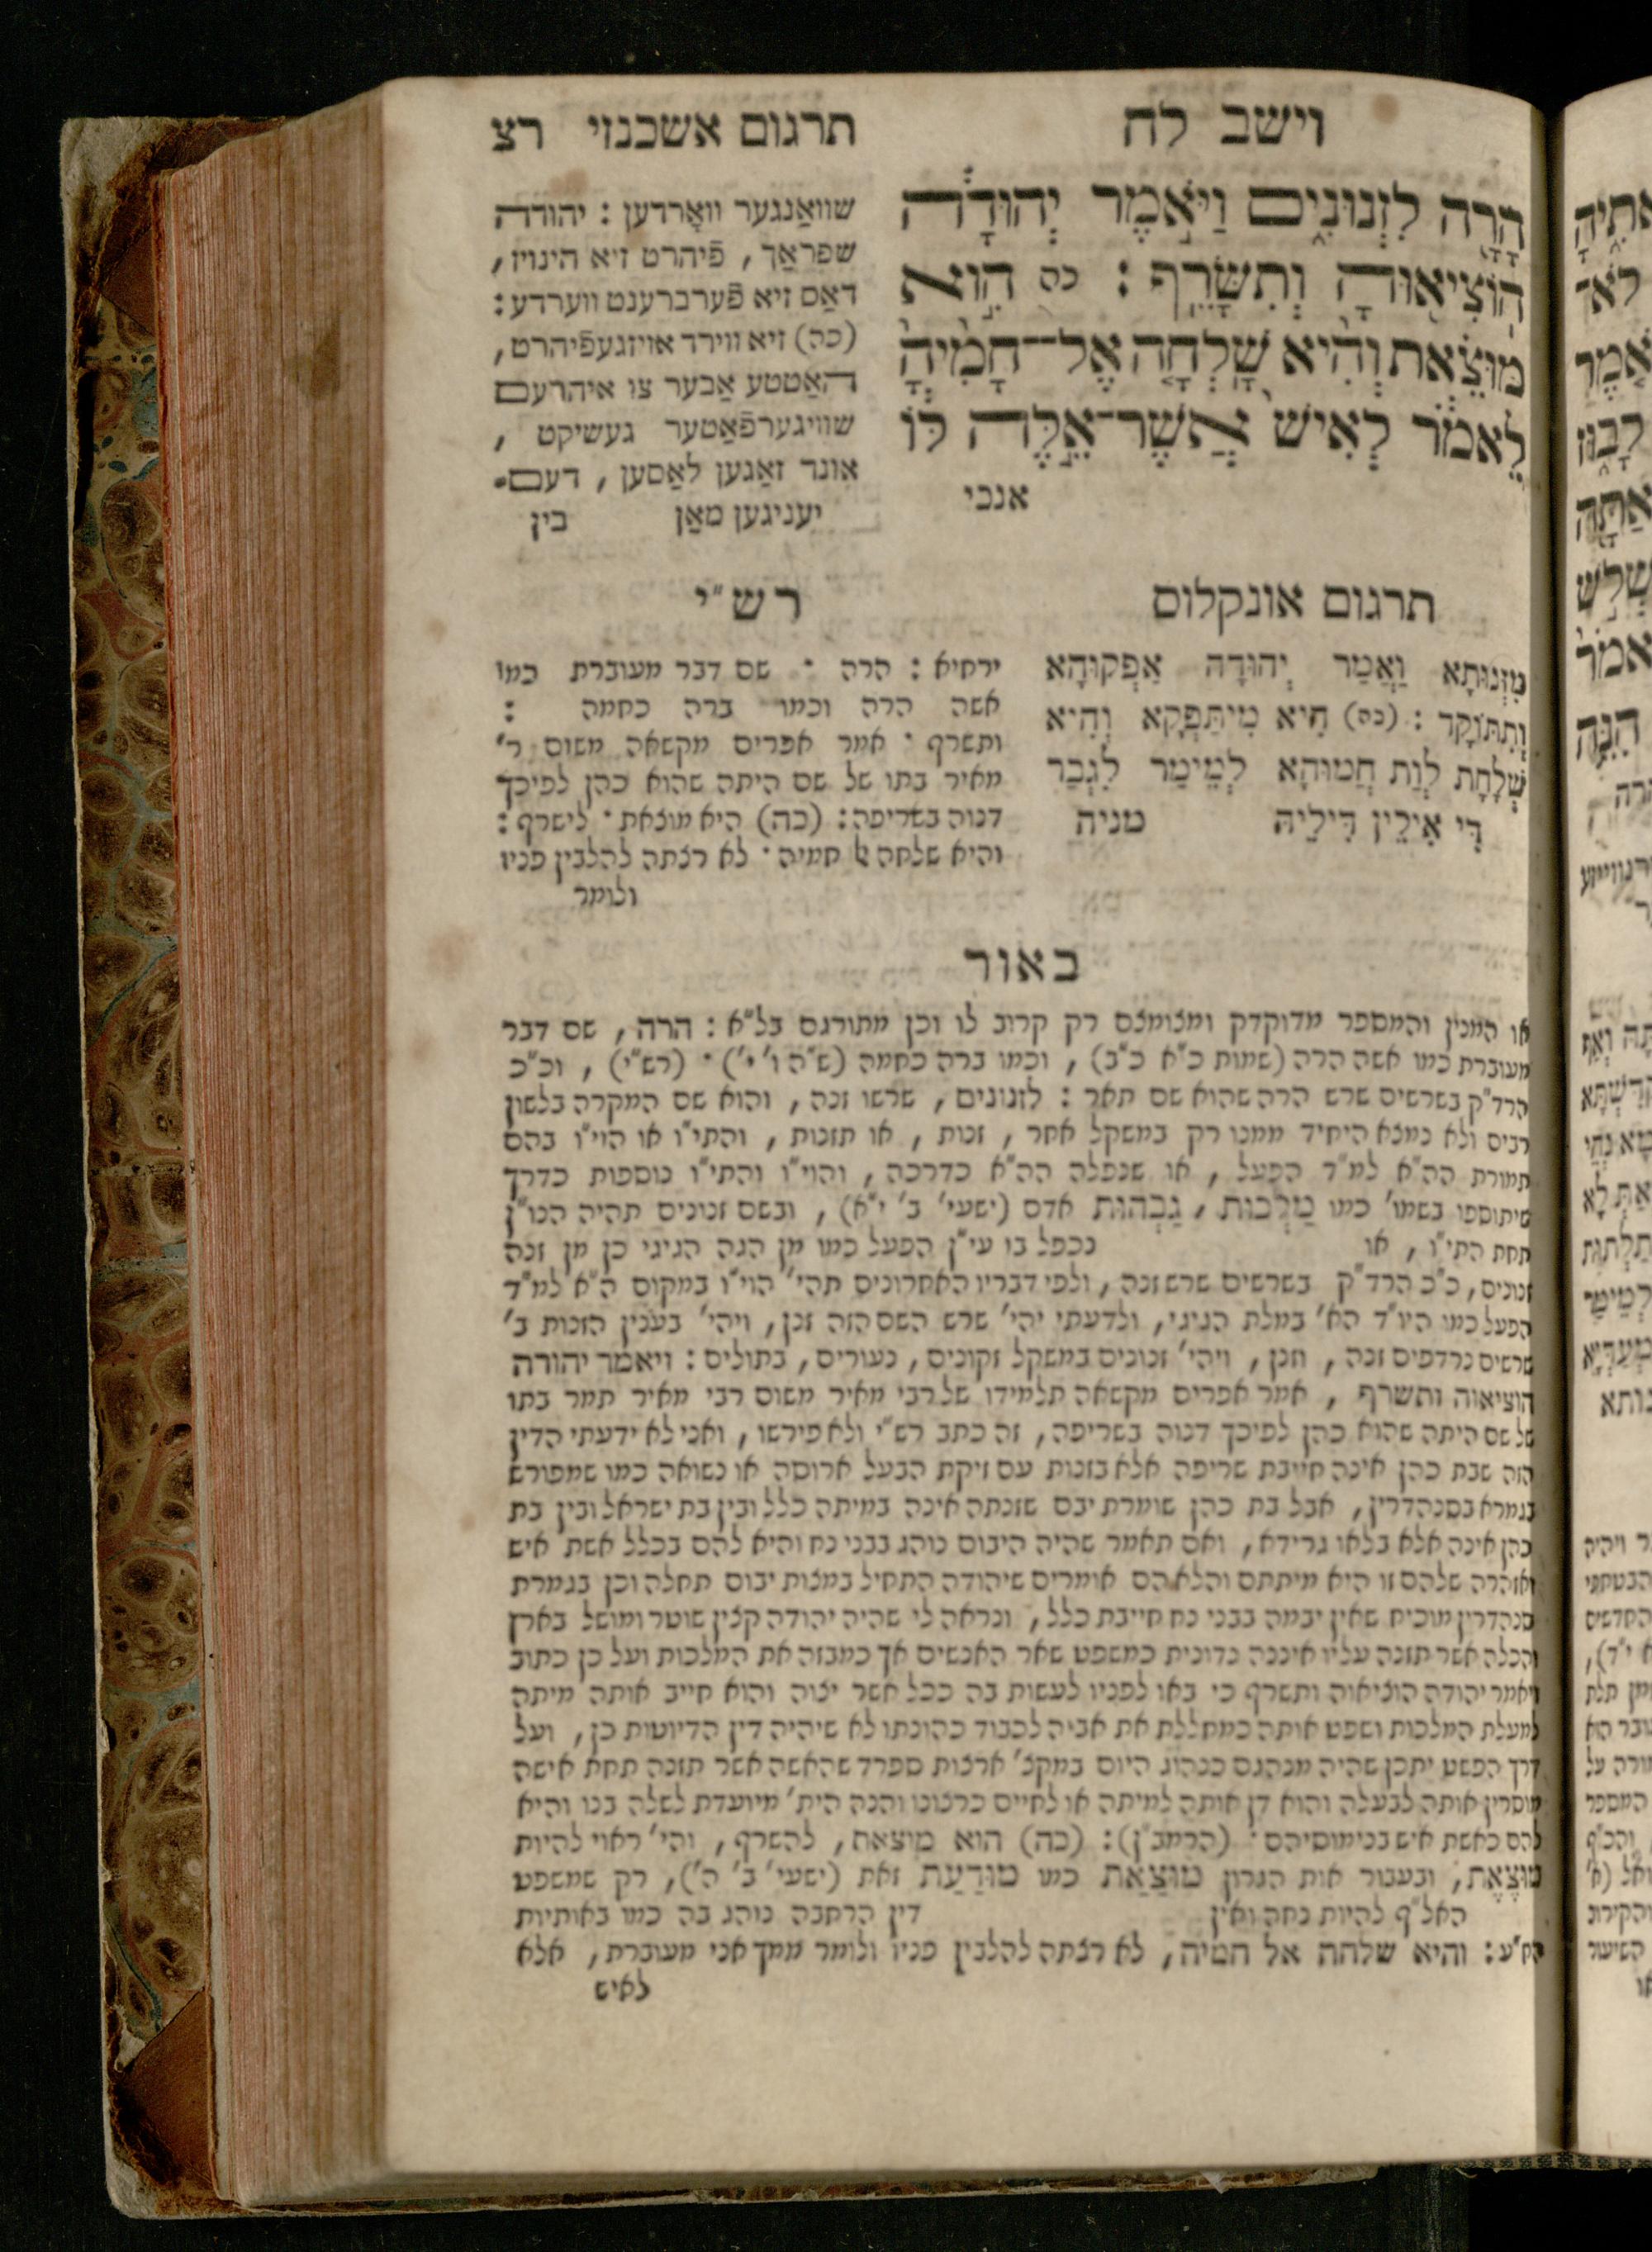 וישב לח
תרגום אשכנזי רצ
הָרָה לִזְנוּנִים וַיֹּאמֶר יְהוּדָה
הוֹצִיאוּהָ וְתִשָּׂרֵף : כה הִוא
מוּצֵאת וְהִיא שָׁלְחָה אֶל־חָמִיהָ
לֵאמֹר לְאִישׁ אֲשֶׁר־אֵלֶּה לּוֹ
אנכי
שוואַנגער וואָרדען : יהודה
שפראַך , פֿיהרט זיא הינויז ,
דאַס זיא פֿערברענט ווערדע :
(כה) זיא ווירד אויזגעפֿיהרט ,
האַטטע אַבער צו איהרעם
שוויגערפֿאַטער געשיקט ,
אונד זאַגען לאַסען , דעם־
יעניגען מאַן בין
תרגום אונקלוס
מִזְנוּתָא וַאֲמַר יְהוּדָה אַפְקוּהָא
וְתִתּוֹקָד : (כה) הִיא מִיתַּפְּקָא וְהִיא
שְׁלָחַת לְוַת חֲמוּהָא לְמֵימַר לִגְבַר
דִּי אִילֵין דִּילֵיהּ מניה
רש״י
ירחיא : הרה · שם דבר מעוברת כמו
אשה הרה וכמו ברה כחמה :
ותשרף · אמר אפרים מקשאה משום ר׳
מאיר בתו של שם היתה שהוא כהן לפיכך
דנוה בשריפה : (כה) היא מוצאת · לישרף :
והיא שלחה אל חמיה · לא רצתה להלבין פניו
ולומר
באור
או המנין והמספר מדוקדק ומצומצם רק קרוב לו וכן מתורגם בל״א : הרה , שם דבר
מעוברת כמו אשה הרה (שמות כ״א כ״ב) , וכמו ברה כחמה (ש״ה ו׳ י׳) · (רש״י) , וכ״כ
הרד״ק בשרשים שרש הרה שהוא שם תאר : לזנונים , שרשו זנה , והוא שם המקרה בלשון
רבים ולא נמצא היחיד ממנו רק במשקל אחר , זנות , או תזנות , והתי״ו או הוי״ו בהם
תמורת הה״א למ״ד הפעל , או שנפלה הה״א כדרכה , והוי״ו והתי״ו נוספות כדרך
שיתוספו בשמו׳ כמו מַלְכוּת , גַבְהוּת אדם (ישעי׳ ב׳ י״א) , ובשם זנונים תהיה הנו״ן
תחת התי״ו , או נכפל בו עי״ן הפעל כמו מן הגה הגיגי כן מן זנה
זנונים , כ״כ הרד״ק בשרשים שרש זנה , ולפי דבריו האחרונים תהי׳ הוי״ו במקום ה״א למ״ד
הפעל כמו היו״ד הא׳ במלת הגיגי , ולדעתי יהי׳ שרש השם הזה זנן , ויהי׳ בענין הזנות ב׳
שרשים נרדפים זנה , וזנן , ויהי׳ זנונים במשקל זקונים , נעורים , בתולים : ויאמר יהודה
הוציאוה ותשרף , אמר אפרים מקשאה תלמידו של רבי מאיר משום רבי מאיר תמר בתו
של שם היתה שהוא כהן לפיכך דנוה בשריפה , זה כתב רש״י ולא פירשו , ואני לא ידעתי הדין
הזה שבת כהן אינה חייבת שריפה אלא בזנות עם זיקת הבעל ארוסה או נשואה כמו שמפורש
בגמרא בסנהדרין , אבל בת כהן שומרת יבם שזנתה אינה במיתה כלל ובין בת ישראל ובין בת
כהן אינה אלא בלאו גרידא , ואם תאמר שהיה היבום נוהג בבני נח והיא להם בכלל אשת איש
ואזהרה שלהם זו היא מיתתם והלא הם אומרים שיהודה התחיל במצות יבום תחלה וכן בגמרת
סנהדרין מוכיח שאין יבמה בבני נח חייבת כלל , ונראה לי שהיה יהודה קצין שוטר ומושל בארץ
והכלה אשר תזנה עליו איננה נדונית כמשפט שאר האנשים אך כמבזה את המלכות ועל כן כתוב
ויאמר יהודה הוציאוה ותשרף כי באו לפניו לעשות בה ככל אשר יצוה והוא חייב אותה מיתה
למעלת המלכות ושפט אותה כמחללת את אביה לכבוד כהונתו לא שיהיה דין הדיוטות כן , ועל
דרך הפשט יתכן שהיה מנהגם כנהוג היום במקצ׳ ארצות ספרד שהאשה אשר תזנה תחת אישה
מוסרין אותה לבעלה והוא דן אותה למיתה או לחיים כרצונו והנה הית׳ מיועדת לשלה בנו והיא
להם כאשת איש בנימוסיהם · (הרמב״ן) : (כה) הוא מוצאת , להשרף , והי׳ ראוי להיות
מוּצֶאֶת , ובעבור אות הגרון מוּצַאַת כמו מוּדַעַת זאת (ישעי׳ ב׳ ה׳) , רק שמשפט
האל״ף להיות נחה ואין דין הרחבה נוהג בה כמו באותיות
הח״ע : והיא שלחה אל חמיה , לא רצתה להלבין פניו ולומר ממך אני מעוברת , אלא
לאיש